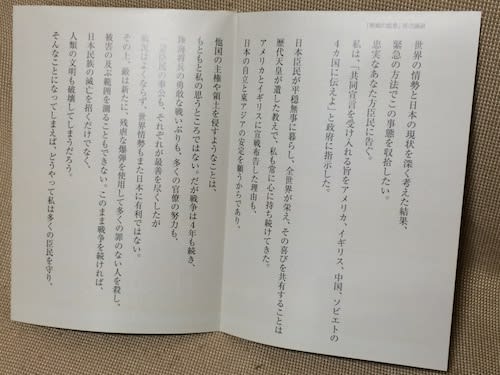 「終戦の詔書」現代語訳
世界の情勢と日本の現状を深く考えた結果、
緊急の方法でこの事態を収拾したい。
忠実なあなた方臣民に告ぐ。
私は、「共同宣言を受け入れる旨をアメリカ、イギリス、中国、ソビエトの
4カ国に伝えよ」と政府に指示した。
日本臣民が平穏無事に暮らし、全世界が栄え、その喜びを共有することは
歴代天皇が遺した教えで、私も常に心に持ち続けてきた。
アメリカとイギリスに宣戦布告した理由も、
日本の自立と東アジアの安定を願うからであり、
他国の主権や領土を侵すようなことは、
もともと私の思うところではない。だが戦争は4年も続き、
陸海将兵の勇敢な戦いぶりも、多くの官僚の努力も、
臣民の奉公も、それぞれが最善を尽くしたが
戦況はよくならず、世界情勢もまた日本に有利ではない。
その上、敵は新たに、残虐な爆弾を使用して多くの罪のない人を殺し、
被害の及ぶ範囲を測ることもできない。このまま戦争を続ければ、
日本民族の滅亡を招くだけでなく、
人類の文明も破壊してしまうだろう。
そんなことになってしまえば、どうやって私は多くの臣民を守り、